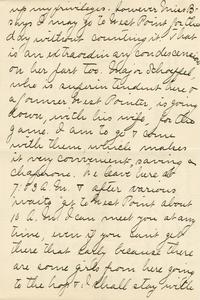 up my privileges. However Miss B-
says I may go to West Point for the
day without counting it. That
is an extraordinary condescension
on her part too. Major Schoeffel,
who is superintendent here &
a former West Pointer, is going
down, with his wife, for the
game. I am to go & come
with them which makes
it very convenient, saving a
chaperone. We leave here at
7:03 A.M. & after various
waits get to West Point about
10 A.M. I can meet you at any
time, even if you can't get
there that early because there
are some girls from here going
to the hop & I shall stay with